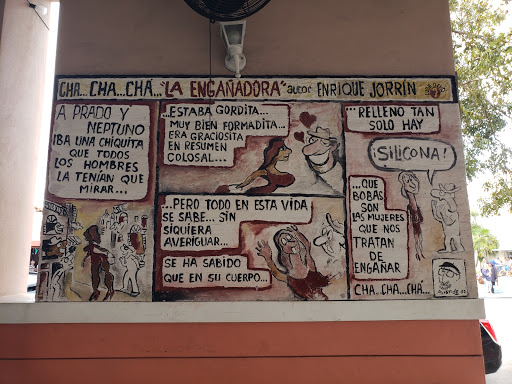 CHA...CHA...CHÁ..."LA ENGAÑADORA" autor ENRIQUE JORRÍN
A PRADO Y
NEPTUNO
IBA UNA CHIQUITA
QUE TODOS
LOS HOMBRES
LA TENÍAN QUE
MIRAR...
...ESTABA GORDITA...
MUY BIEN FORMADITA...
ERA GRACIOSITA
EN RESUMEN
COLOSAL...
...PERO TODO EN ESTA VIDA
SE SABE... SIN
SIQUIERA
AVERIGUAR...
SE HA SABIDO
QUE EN SU CUERPO...
...RELLENO TAN
SOLO HAY
¡SILICONA!
...QUE
BOBAS
SON LAS
MUJERES
QUE NOS
TRATAN
DE
ENGAÑAR
CHA..CHA...CHÁ...